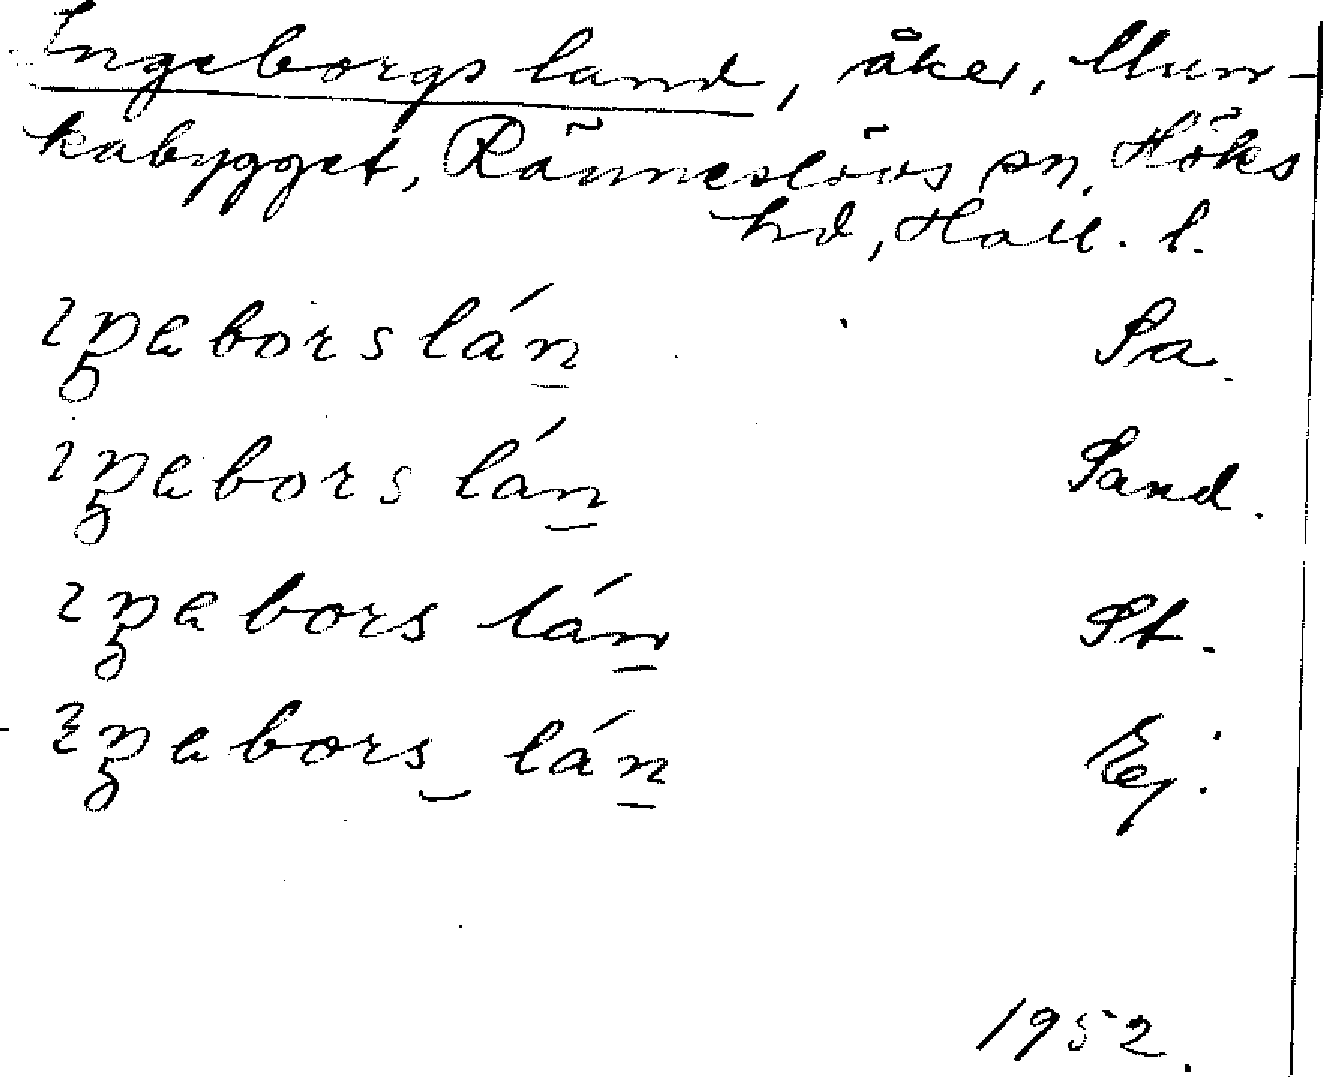 Ingeborgs land, åker, Mun-
kabygget, Ränneslövs sn, Höks
hd, Hall. l.
ıŋaborslán Sa.
ıŋabors lán Sand.
ıŋabors lán St.
ıŋabors lán Ej.
1952.